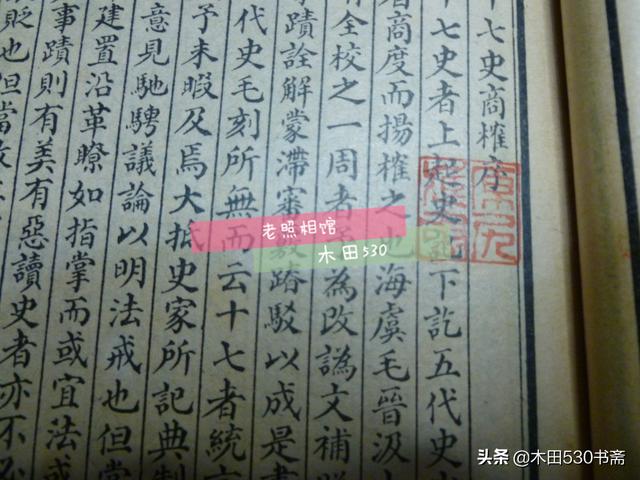 十七史商榷序
十七史者上起史記下訖五代史
者商度而揚榷之也海虞毛晉汲
有全校之一周者為改譌文補
事蹟詮解蒙滯審駁踳駮以成是書
代史毛刻所無而云十七者統言
予未暇及焉大抵史家所記典制
意見馳騁議論以明法戒也但當
建置沿革瞭如指掌而或宜法或
事蹟則有美有惡讀史者亦不必
貶也但當
老照相馆
木田530
头条 @木田530书斋